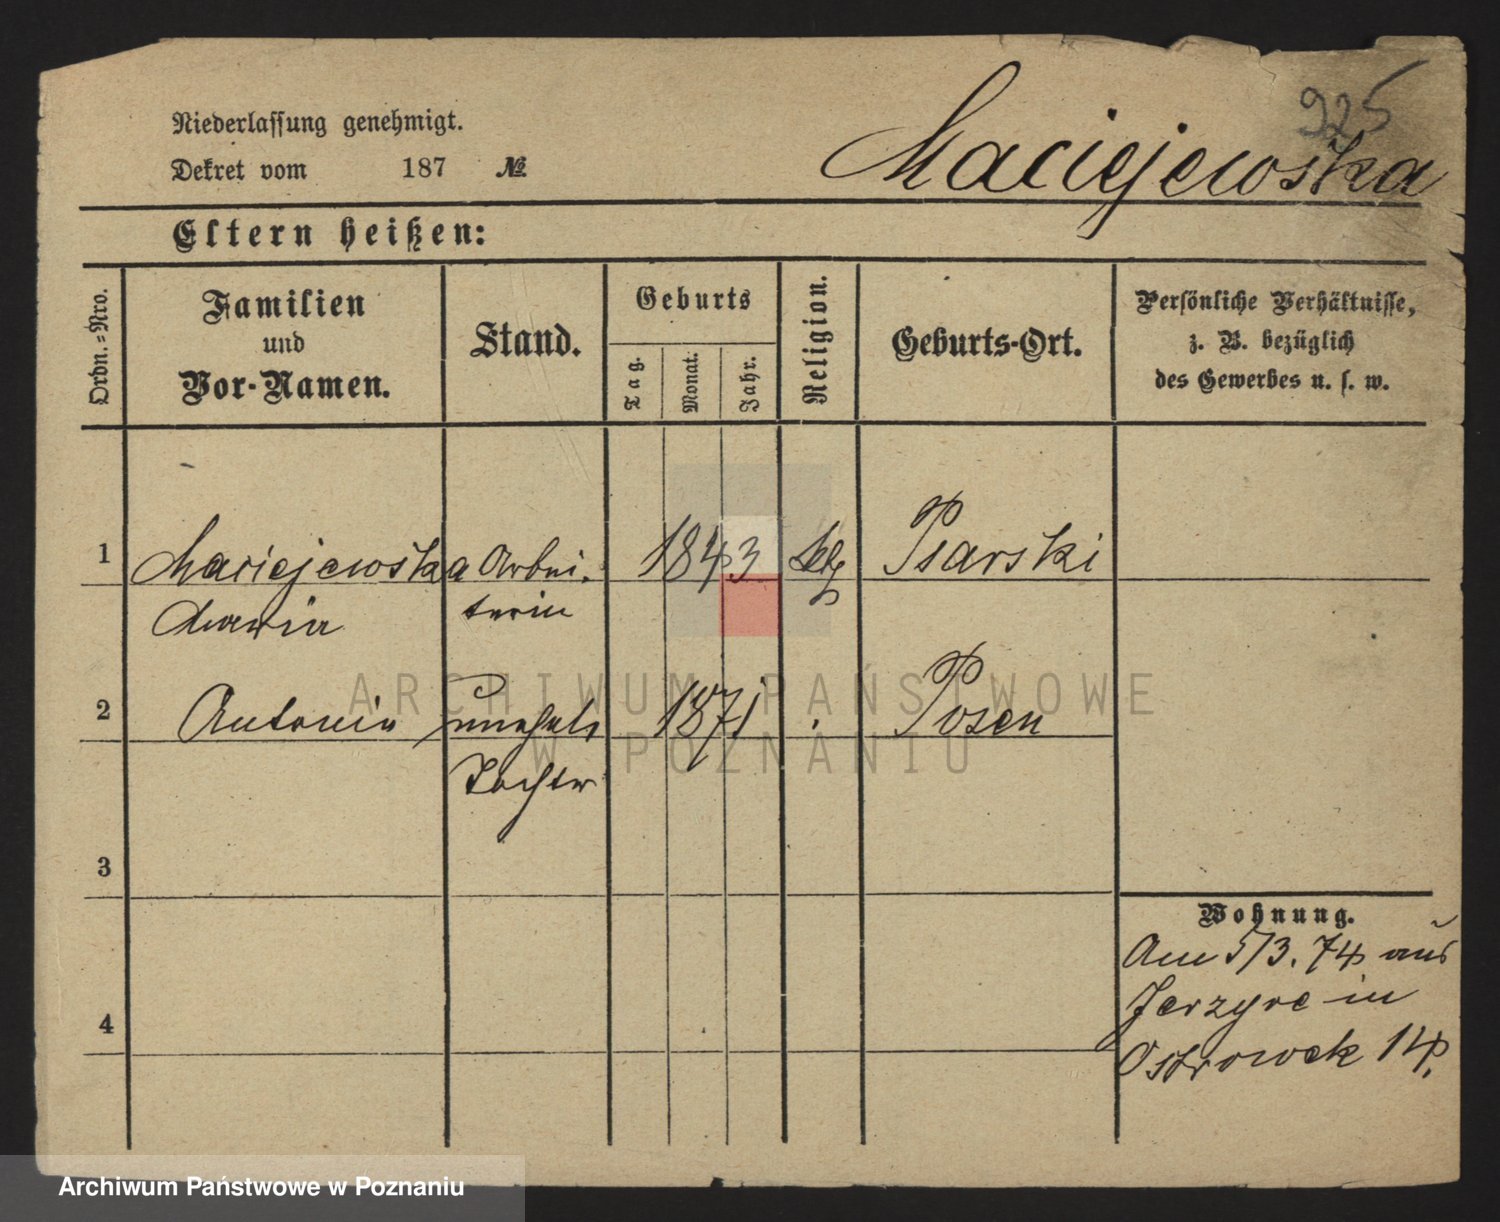 925
Niederlassung genehmigt.
Maciejewska
Dekret vom 187 №
Eltern heißen:
Ordn.-Nro.
Familien und Vor-Namen.
Stand.
Geburts
Tag.
Monat.
Jahr.
Religion.
Geburts-Ort.
Persönliche Verhältnisse,
z. B. bezüglich
des Gewerbes u. s. w.
1 Maciejewska Arbei- 1843 Psarski
Maria terin
2 Antonia unehel. 1871 Posen
Tochter
3
Wohnung.
Am 5/3. 74 aus
Jerzyce in
Ostrowek 14.
4
ARCHIWUM PAŃSTWOWE
W POZNANIU
Archiwum Państwowe w Poznaniu